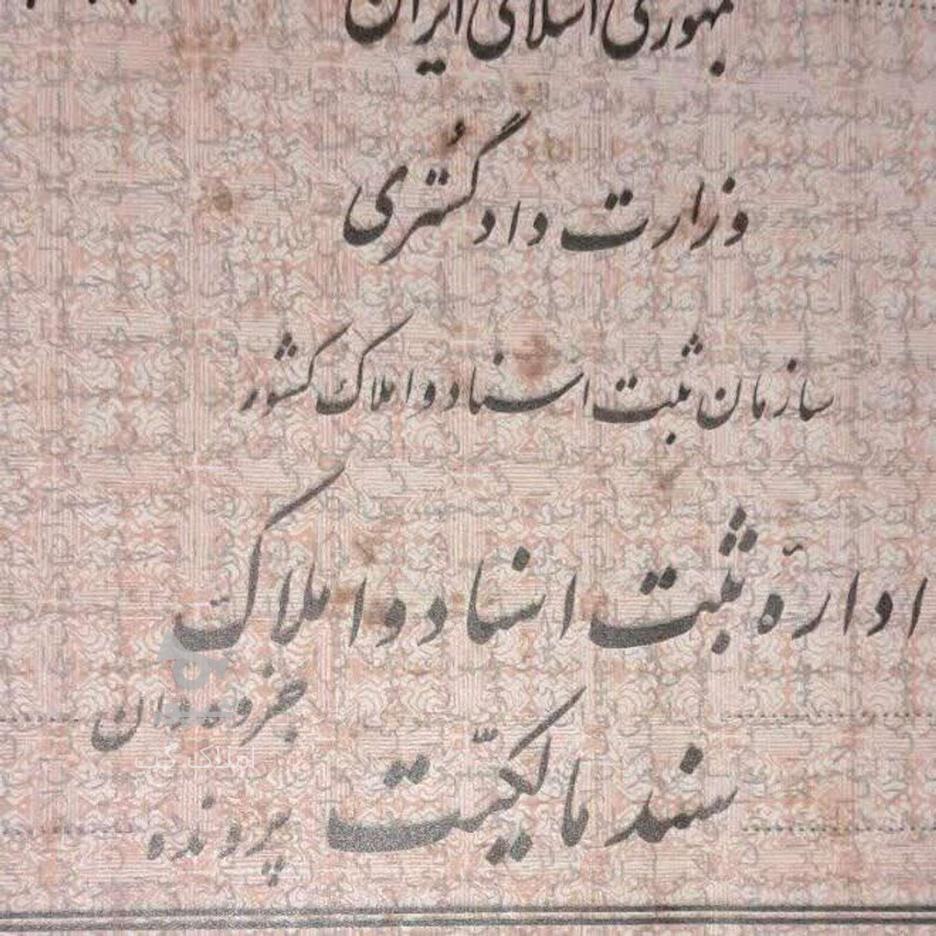 جمهوری اسلامی ایران
وزارت دادگستری
سازمان ثبت اسناد و املاک کشور
ادارهٔ ثبت اسناد و املاک
جزوه‌دان
سند مالکیّت
پرونده
املاک گیت